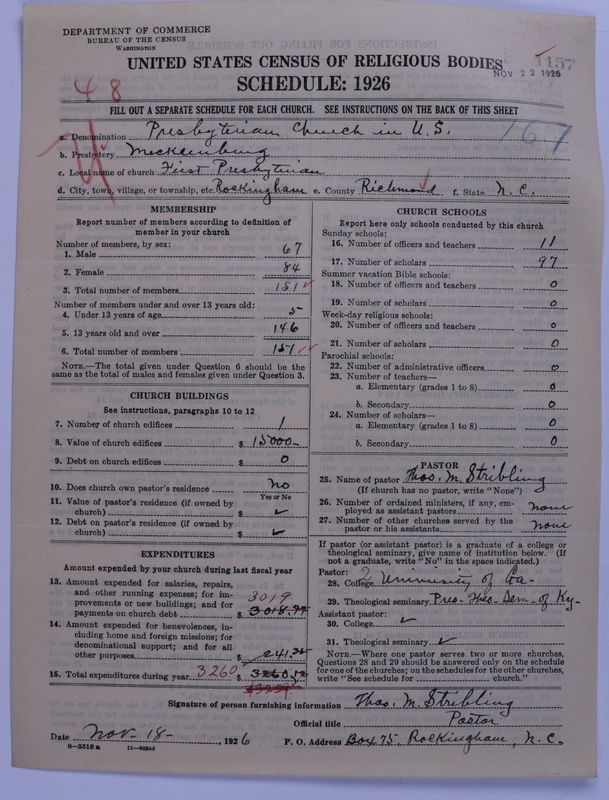 DEPARTMENT OF COMMERCE
BUREAU OF THE CENSUS
WASHINGTON
UNITED STATES CENSUS OF RELIGIOUS BODIES
1157
NOV 22 1926
SCHEDULE: 1926
48
FILL OUT A SEPARATE SCHEDULE FOR EACH CHURCH. SEE INSTRUCTIONS ON THE BACK OF THIS SHEET
a. Denomination Presbyterian Church in U.S.
167
b. Presbytery Mecklenburg
c. Local name of church First Presbyterian
d. City, town, village, or township, etc. Rockingham e. County Richmond f. State N.C.
MEMBERSHIP
Report number of members according to definition of
member in your church
Number of members, by sex:
1. Male 67
2. Female 84
3. Total number of members 151
Number of members under and over 13 years old:
4. Under 13 years of age 5
5. 13 years old and over 146
6. Total number of members 151
NOTE.—The total given under Question 6 should be
same as the total of males and females given under Question 3.
CHURCH BUILDINGS
See instructions, paragraphs 10 to 12
7. Number of church edifices 1
8. Value of church edifices $ 15000-
9. Debt on church edifices $ 0
10. Does church own pastor's residence No
Yes or No
11. Value of pastor's residence (if owned by
church) $ ✓
12. Debt on pastor's residence (if owned by
church) $ ✓
EXPENDITURES
Amount expended by your church during last fiscal year
13. Amount expended for salaries, repairs,
and other running expenses; for im-
provements or new buildings; and for 3019
payments on church debt $
14. Amount expended for benevolences, in-
cluding home and foreign missions; for
denominational support; and for all
other purposes $
15. Total expenditures during year 3260 $
CHURCH SCHOOLS
Report here only schools conducted by this church
Sunday schools:
16. Number of officers and teachers 11
17. Number of scholars 97
Summer vacation Bible schools:
18. Number of officers and teachers 0
19. Number of scholars 0
Week-day religious schools:
20. Number of officers and teachers 0
21. Number of scholars 0
Parochial schools:
22. Number of administrative officers 0
23. Number of teachers—
a. Elementary (grades 1 to 8) 0
b. Secondary 0
24. Number of scholars—
a. Elementary (grades 1 to 8) 0
b. Secondary 0
PASTOR
25. Name of pastor Thos. M. Stribling
(If church has no pastor, write "None")
26. Number of ordained ministers, if any, em-
ployed as assistant pastors none
27. Number of other churches served by the
pastor or his assistants none
If pastor (or assistant pastor) is a graduate of a college or
theological seminary, give name of institution below. (If
not a graduate, write "No" in the space indicated.)
Pastor:
28. College 2 University of Ga-
29. Theological seminary Pres-Theo-Sem-of Ky-
Assistant pastor:
30. College ✓
31. Theological seminary ✓
NOTE.—Where one pastor serves two or more churches,
Questions 28 and 29 should be answered only on the schedule
for one of the churches; on the schedules for the other churches,
write "See schedule for church."
Signature of person furnishing information Thos. M. Stribling
Official title Pastor
Date Nov-18-, 1926 P. O. Address Box 75, Rockingham, N.C.
8-5518 a